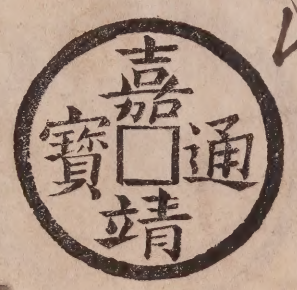 嘉靖通寶